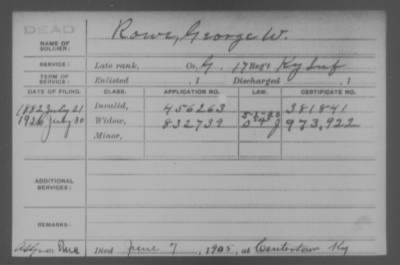 DEAD
NAME OF SOLDIER: Rowe, George W.
SERVICE: Late rank, Co. G. 17 Reg't Ky Inf
TERM OF SERVICE: Enlisted , 1 Discharged , 1
DATE OF FILING. CLASS. APPLICATION NO. LAW. CERTIFICATE NO.
1882 July 21 Invalid, 456263 381841
1926 July 30 Widow, 832739 973,922
Minor,
ADDITIONAL SERVICES:
REMARKS:
Died June 7, 1908, at Centertown Ky